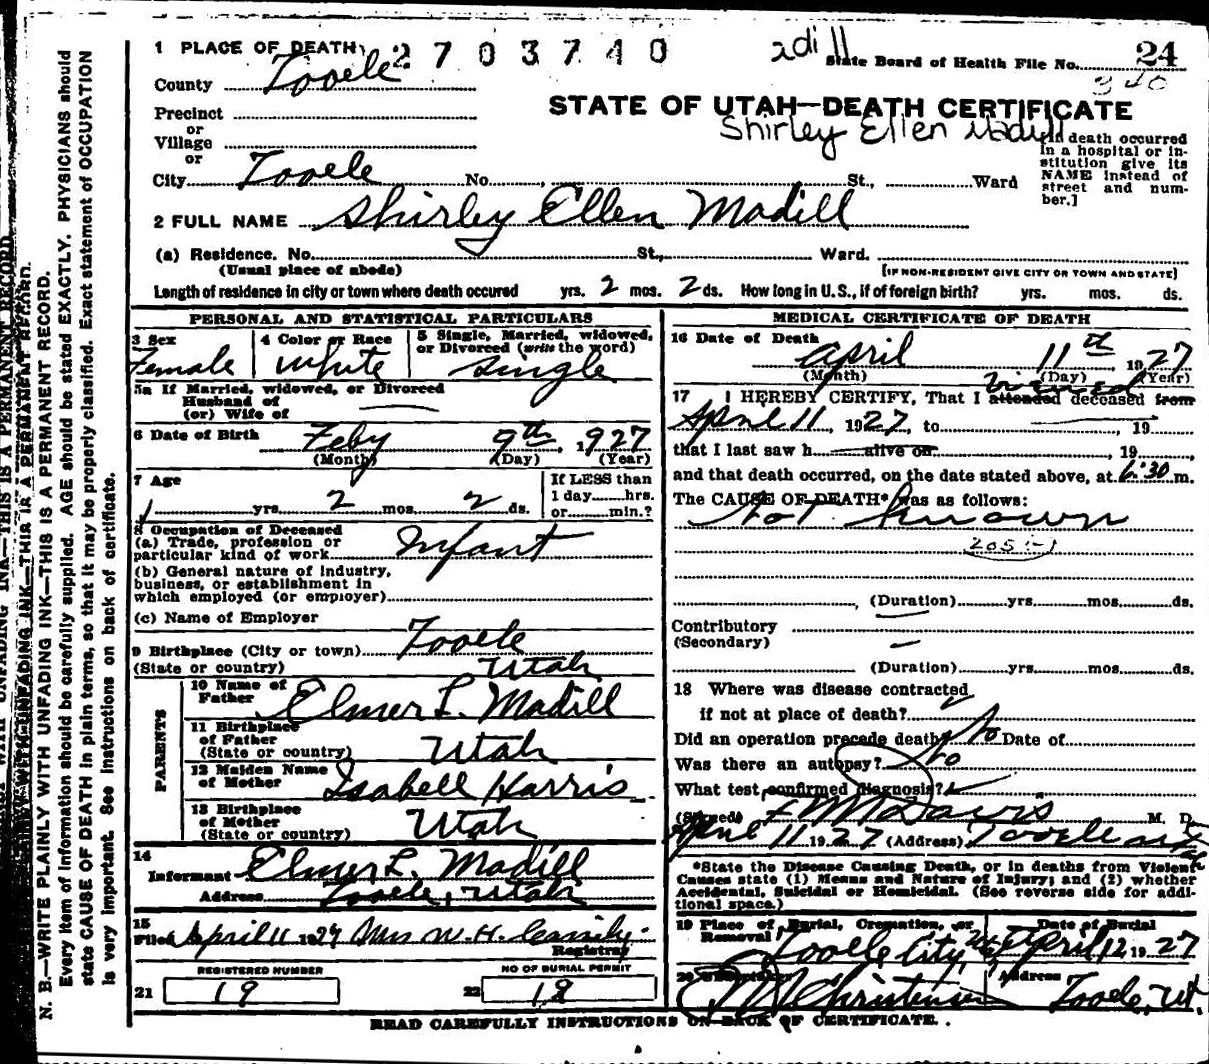 1 PLACE OF DEATH 2703740 2dill State Board of Health File No. 24
County Tooele 340
STATE OF UTAH—DEATH CERTIFICATE
Precinct
or
Shirley Ellen Madill
Village
or
City Tooele No. , St., Ward
[If death occurred
in a hospital or in-
stitution give its
NAME instead of
street and num-
ber.]
2 FULL NAME Shirley Ellen Madill
(a) Residence. No. St., Ward.
(Usual place of abode) [IF NON-RESIDENT GIVE CITY OR TOWN AND STATE]
Length of residence in city or town where death occured yrs. 2 mos. 2 ds. How long in U. S., if of foreign birth? yrs. mos. ds.
PERSONAL AND STATISTICAL PARTICULARS
3 Sex
Female
4 Color or Race
White
5 Single, Married, widowed,
or Divorced (write the word)
Single
5a If Married, widowed, or Divorced
Husband of
(or) Wife of
6 Date of Birth Feby 9th, 1927
(Month) (Day) (Year)
7 Age
yrs. 2 mos. 2 ds.
If LESS than
1 day hrs.
or min.?
8 Occupation of Deceased
(a) Trade, profession or
particular kind of work Infant
(b) General nature of industry,
business, or establishment in
which employed (or employer)
(c) Name of Employer
9 Birthplace (City or town) Tooele
(State or country) Utah
PARENTS
10 Name of
Father Elmer L. Madill
11 Birthplace
of Father
(State or country) Utah
12 Maiden Name
of Mother Isabell Harris
13 Birthplace
of Mother
(State or country) Utah
14
Informant Elmer L. Madill
Address Tooele, Utah
15
Filed April 11 1927 Mrs W. H. Cassity
Registrar
REGISTERED NUMBER
21 19
NO OF BURIAL PERMIT
22 18
MEDICAL CERTIFICATE OF DEATH
16 Date of Death
April 11th 1927
(Month) (Day) (Year)
viewed
17 I HEREBY CERTIFY, That I attended deceased from
April 11, 1927, to , 19
that I last saw h alive on , 19
and that death occurred, on the date stated above, at 6:30 m.
The CAUSE OF DEATH* was as follows:
Not Known
205-1
, (Duration) yrs. mos. ds.
Contributory
(Secondary)
(Duration) yrs. mos. ds.
18 Where was disease contracted
if not at place of death?
Did an operation precede death? No Date of
Was there an autopsy? No
What test confirmed diagnosis?
(Signed) F M Davis M. D.
April 11 1927 (Address) Tooele Utah
*State the Disease Causing Death, or in deaths from Violent
Causes state (1) Means and Nature of Injury; and (2) whether
Accidental, Suicidal or Homicidal. (See reverse side for addi-
tional space.)
19 Place of Burial, Cremation, or
Removal Tooele City, Utah
Date of Burial
April 12 1927
20 Undertaker
Christensen
Address
Tooele, Ut.
READ CAREFULLY INSTRUCTIONS ON BACK OF CERTIFICATE.
N. B.—WRITE PLAINLY WITH UNFADING INK—THIS IS A PERMANENT RECORD.
Every item of information should be carefully supplied. AGE should be stated EXACTLY. PHYSICIANS should
state CAUSE OF DEATH in plain terms, so that it may be properly classified. Exact statement of OCCUPATION
is very important. See instructions on back of certificate.